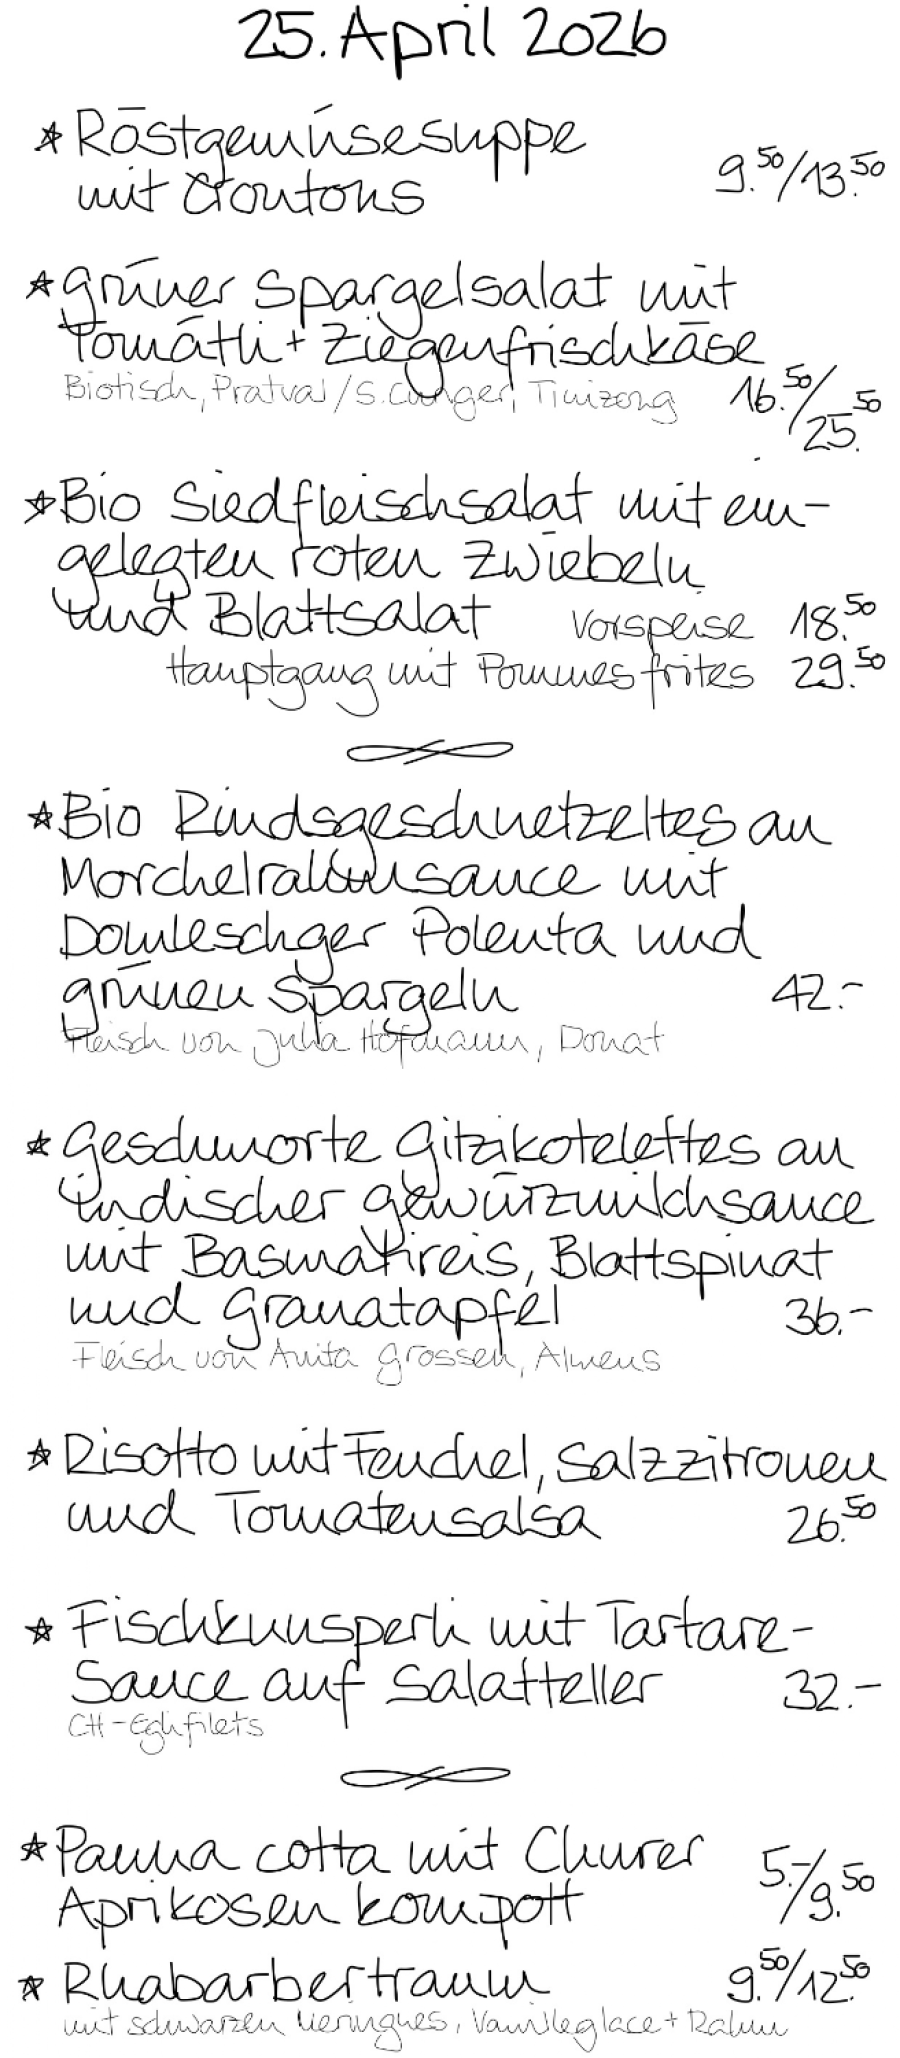 25. April 2026
* Röstgemüsesuppe
mit Croutons 9.50/13.50
* Grüner Spargelsalat mit
Tomätli + Ziegenfrischkäse
Biotisch, Pratval / S. Tinizong 16.50/
25.50
* Bio Siedfleischsalat mit ein-
gelegten roten Zwiebeln
und Blattsalat Vorspeise 18.50
Hauptgang mit Pommes frites 29.50
* Bio Rindsgeschnetzeltes an
Morchelrahmsauce mit
Domleschger Polenta und
grünen Spargeln 42.-
Fleisch von Julia Hofmann, Donat
* Geschmorte Gitzikotelettes an
indischer Gewürzmilchsauce
mit Basmatireis, Blattspinat
und Granatapfel 36.-
Fleisch von Anita Grossen, Almens
* Risotto mit Fenchel, Salzzitronen
und Tomatensalsa 26.50
* Fischknusperli mit Tartare-
Sauce auf Salatteller 32.-
CH-Eglifilets
* Panna cotta mit Churer
Aprikosenkompott 5.-/9.50
* Rhabarbertraum 9.50/12.50
mit schwarzen Meringues, Vanilleglace + Rahm